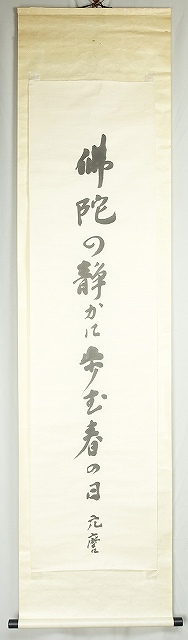 佛陀の静かに歩む春の日
元麿